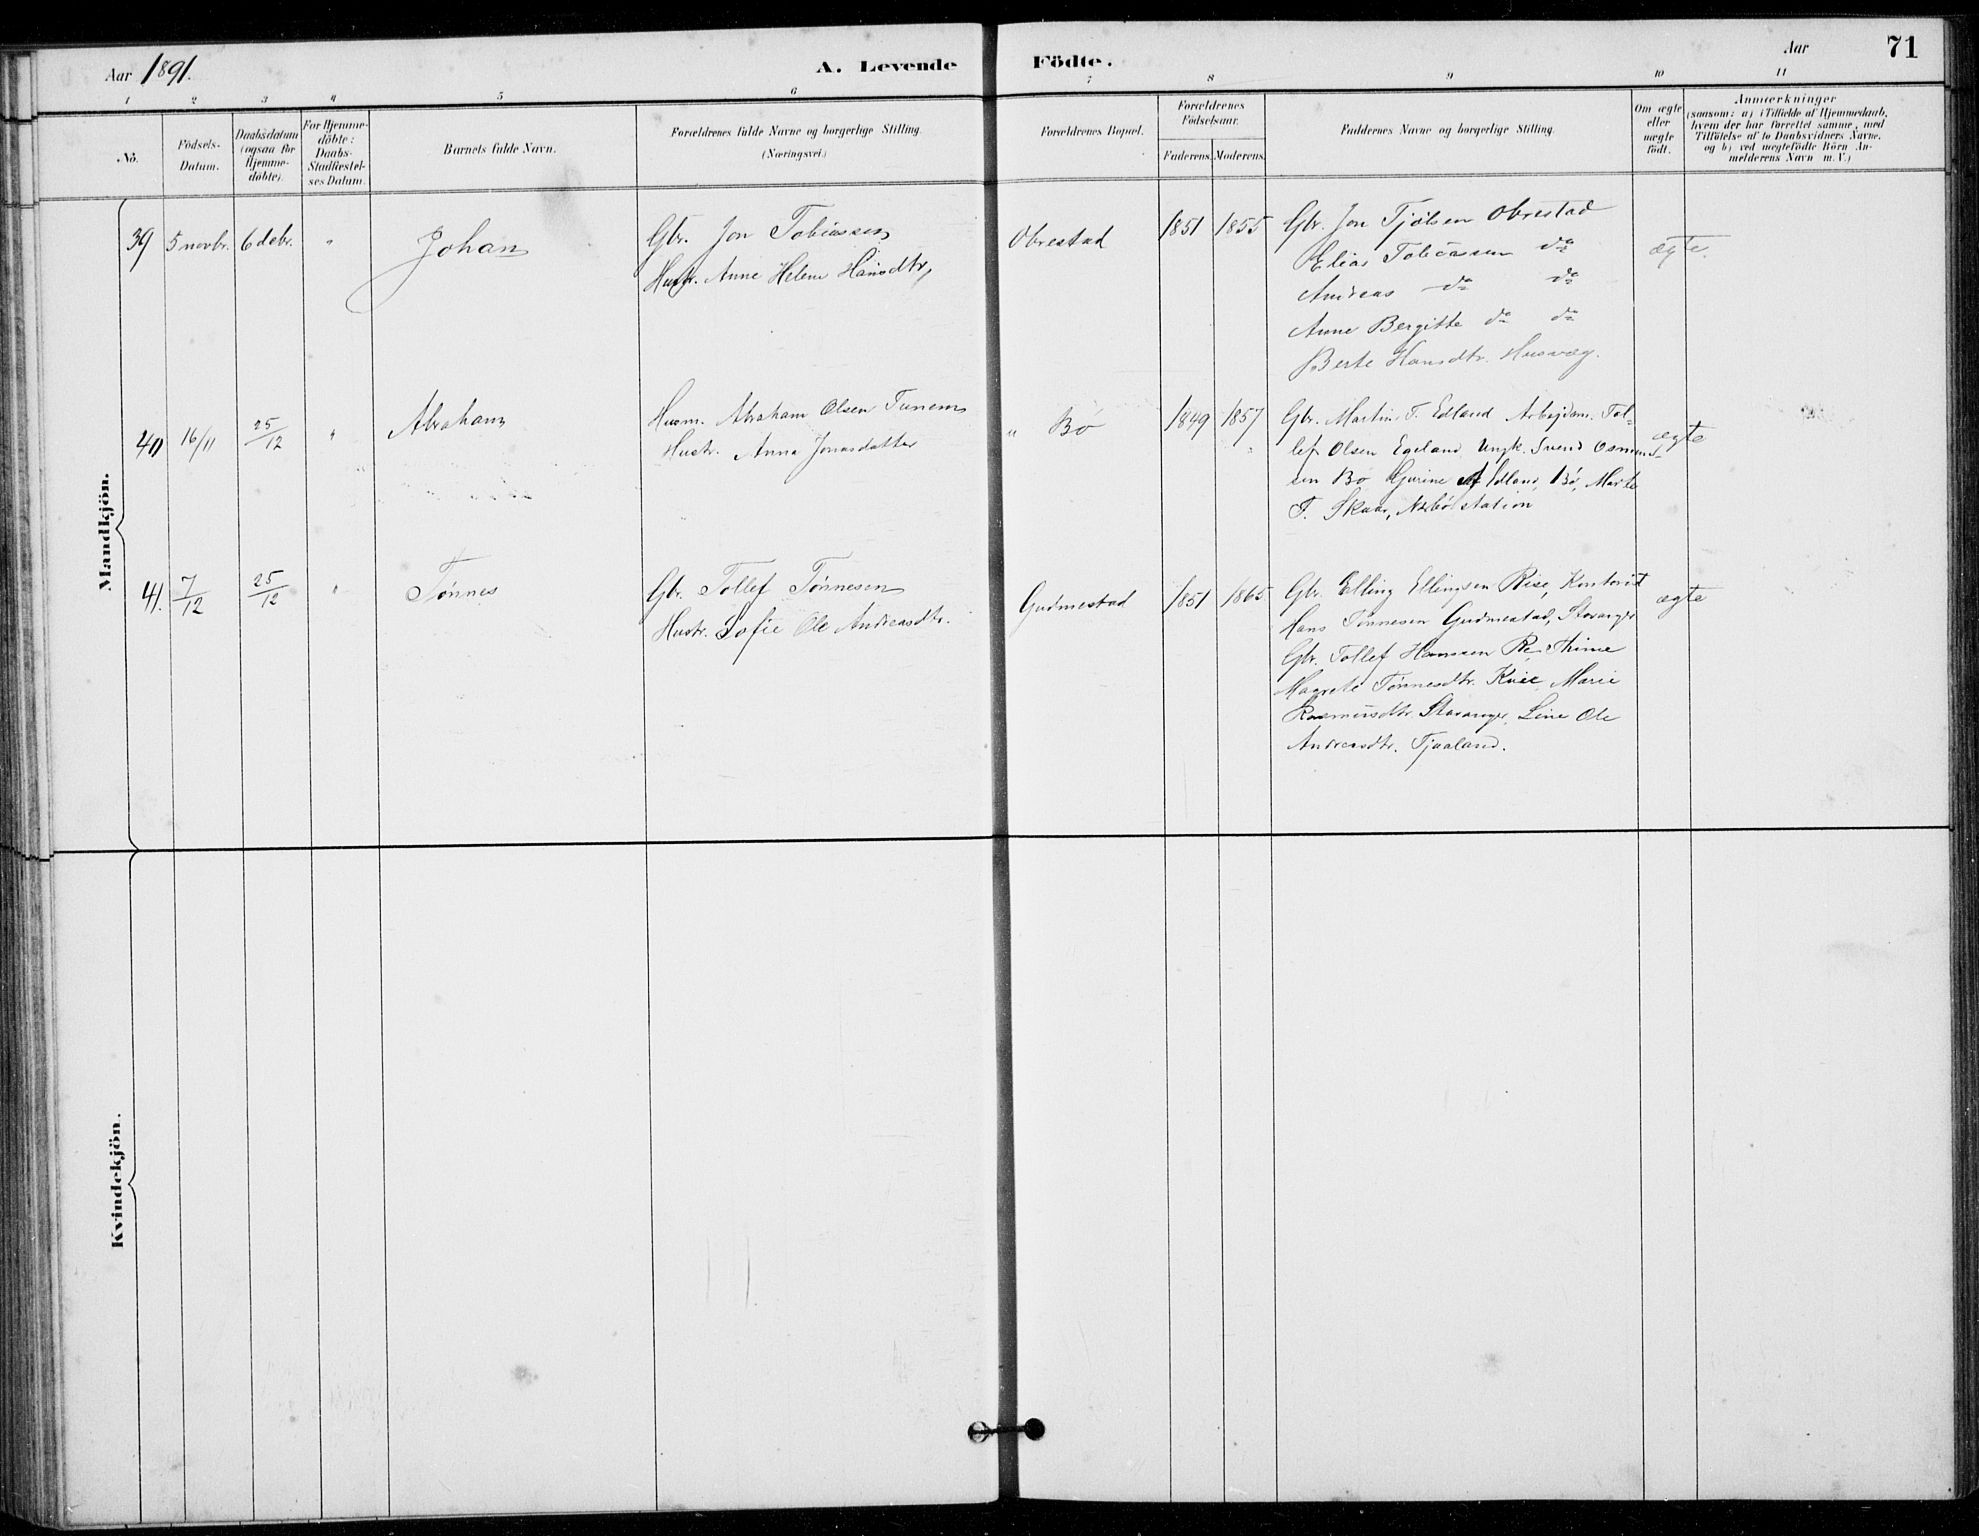 Aar 1891.
A. Levende Födte.
Aar
71
1 2 3 4 5 6 7 8 9 10 11
No.
Födsels-Datum.
Daabsdatum (ogsaa for Hjemmedöbte).
For Hjemmedöbte: Daabs-Stadfæstelses Datum.
Barnets fulde Navn.
Forældrenes fulde Navne og borgerlige Stilling. (Næringsvei.)
Forældrenes Bopæl.
Forældrenes Födselsaar.
Faderens. Moderens.
Faddernes Navne og borgerlige Stilling.
Om ægte eller uægte födt.
Anmærkninger
(saasom: a) i Tilfælde af Hjemmedaab, hvem der har forrettet samme, med Tilföielse af to Daabsvidners Navne, og b) ved uægtefödte Börn Anmelderens Navn m. V.)
Mandkjön.
39 5 novbr. 6 debr. " Johan
Gbr. Jon Tobiassen
Hustr. Anne Helene Hansdtr,
Obrestad 1851 1855
Gbr. Jon Tjølsen Obrestad
Elias Tobiassen do
Andreas do do
Anne Bergitte do do
Berte Hansdtr. Husvæg.
ægte.
40 16/11 25/12 " Abraham
Husm. Abraham Olsen Tunem
Hustr. Anna Jonasdatter
" Bø 1849 1857
Gbr. Martin T. Edland Arbejdsm. Tol-
lef Olsen Egeland Ungk. Svend Osmund-
sen Bø Gurine Edland, Bø, Marte
T. Skaar, Nærbø station
ægte
41. 7/12 25/12 " Tønnes
Gbr. Tollef Tønnesen
Hustr. Sofie Ole Andreasdtr.
Gudmestad 1851 1865
Gbr. Elling Ellingsen Rise, Kontorist
Hans Tønnesen Gudmestad, Stavanger
Gbr. Tollef Hanssen Re Thime
Magrete Tønnesdtr. Kvie, Marie
Rasmusdtr. Stavanger, Line Ole
Andreasdtr. Tjaaland.
ægte
Kvindekjön.